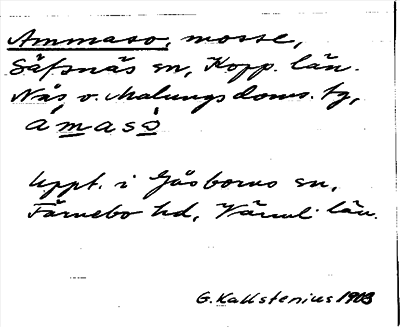 Ammaso, mosse,
Säfsnäs sn, Kopp. län.
Nås o. Malungs doms. tg,
amasò
Uppt. i Gåsborns sn,
Färnebo hd, Värml. län.
G. Kallstenius 1903